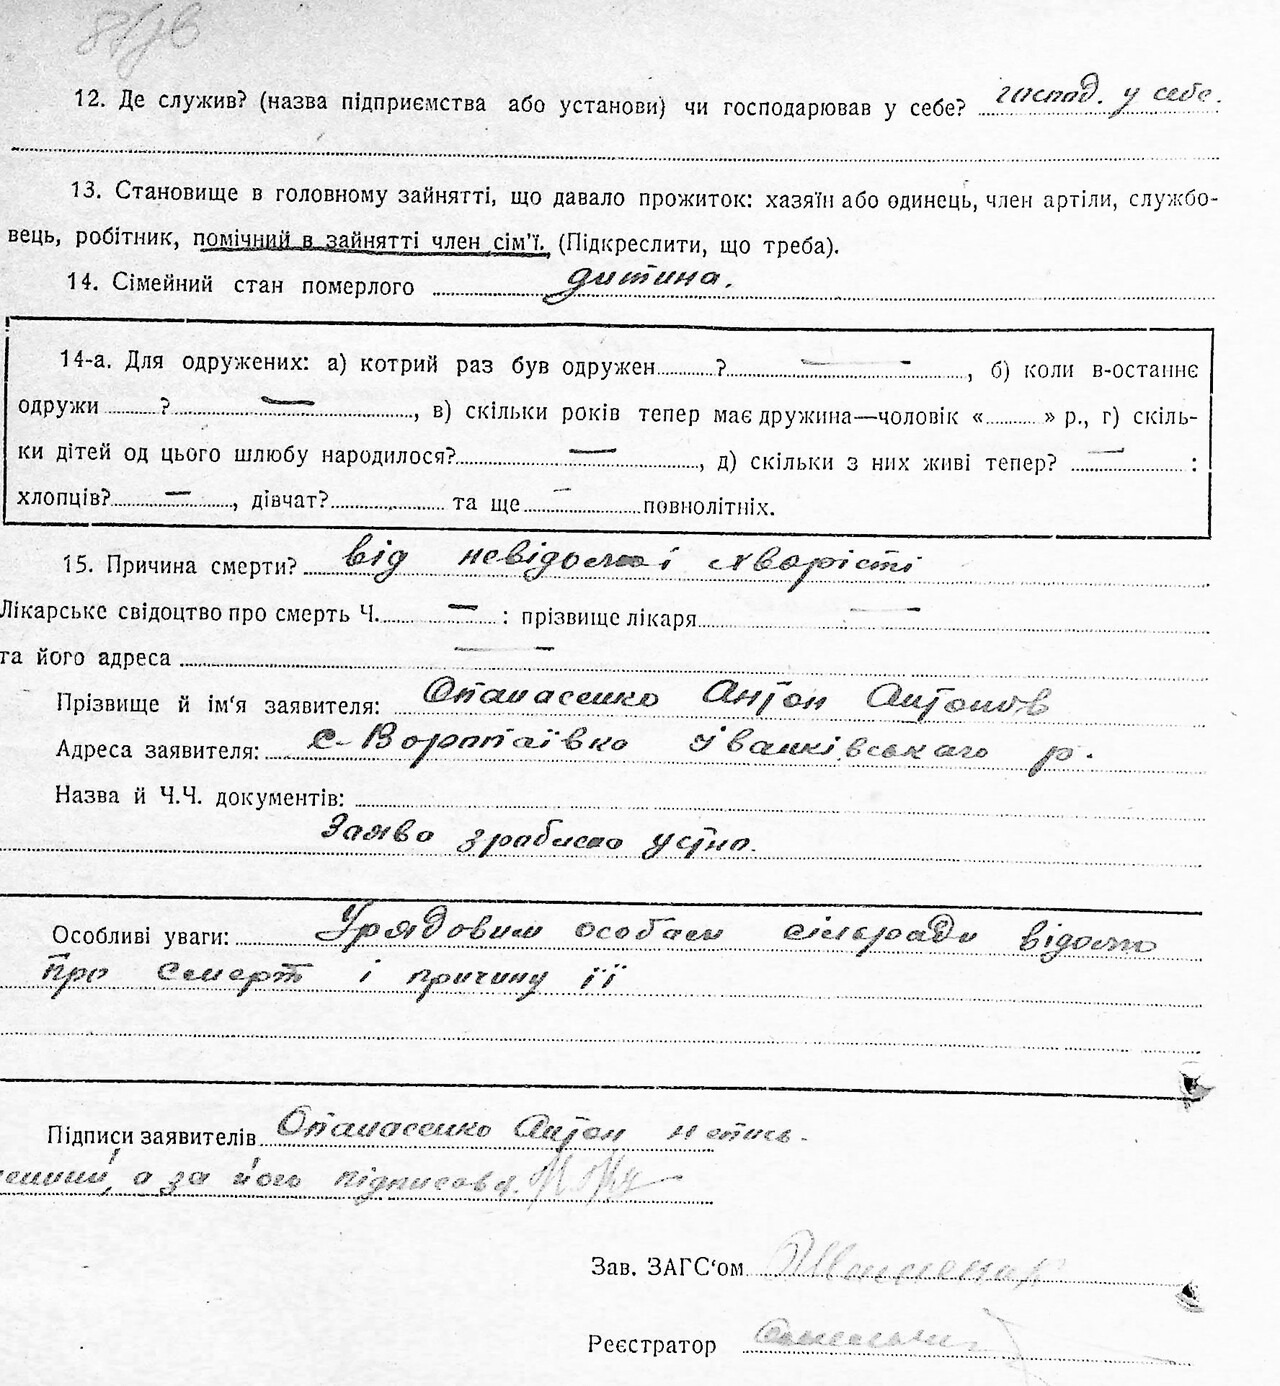 12. Де служив? (назва підприємства або установи) чи господарював у себе? господ. у себе.
13. Становище в головному зайнятті, що давало прожиток: хазяїн або одинець, член артіли, службо-
вець, робітник, помічний в зайнятті член сім'ї. (Підкреслити, що треба).
14. Сімейний стан померлого дитина.
14-а. Для одружених: а) котрий раз був одружен ? —, б) коли в-останнє
одружи ? —, в) скільки років тепер має дружина—чоловік « » р., г) скіль-
ки дітей од цього шлюбу народилося? —, д) скільки з них живі тепер? — :
хлопців? —, дівчат? та ще — повнолітніх.
15. Причина смерти? від невідомоі хворісті
Лікарське свідоцтво про смерть Ч. — : прізвище лікаря —
та його адреса —
Прізвище й ім'я заявителя: Опанасенко Антон Антонів
Адреса заявителя: с. Воропаївка Іванківського р.
Назва й Ч.Ч. документів:
Заява зроблено устно.
Особливі уваги: Урядовим особам сільради відомо
про смерть і причину її
Підписи заявителів Опанасенко Антон непись-
менний, а за його підписався
Зав. ЗАГС'ом
Реєстратор